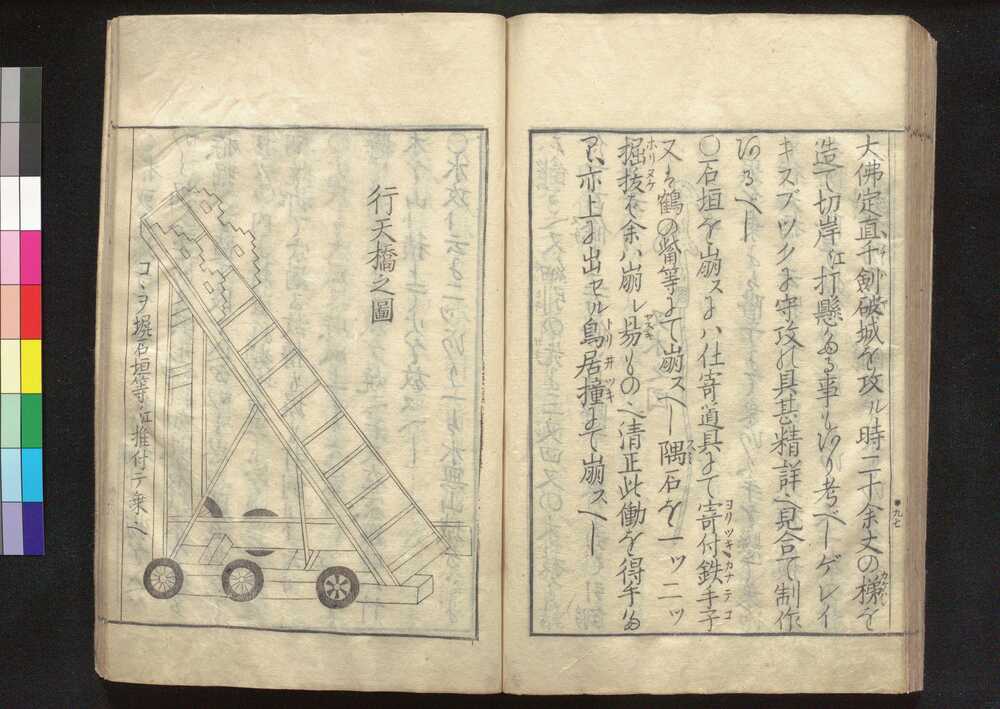 大佛定直千劔破城を攻ル時二十余丈の梯を
造て切岸江打懸たる事もあり考べしゲレイ
キスブック尓守攻の具甚精詳也見合て制作
あるべし
○石垣を崩スにハ仕寄道具にて寄付鉄手子
又は鶴の觜等にて崩スべし隅石を一ツ二ツ
掘抜を余ハ崩レ易ものへ清正此働を得手たり
亦上に出セル鳥居撞にて崩スべし
九七
行天橋之圖
コヽヲ塀石垣等江推付テ乗ベシ